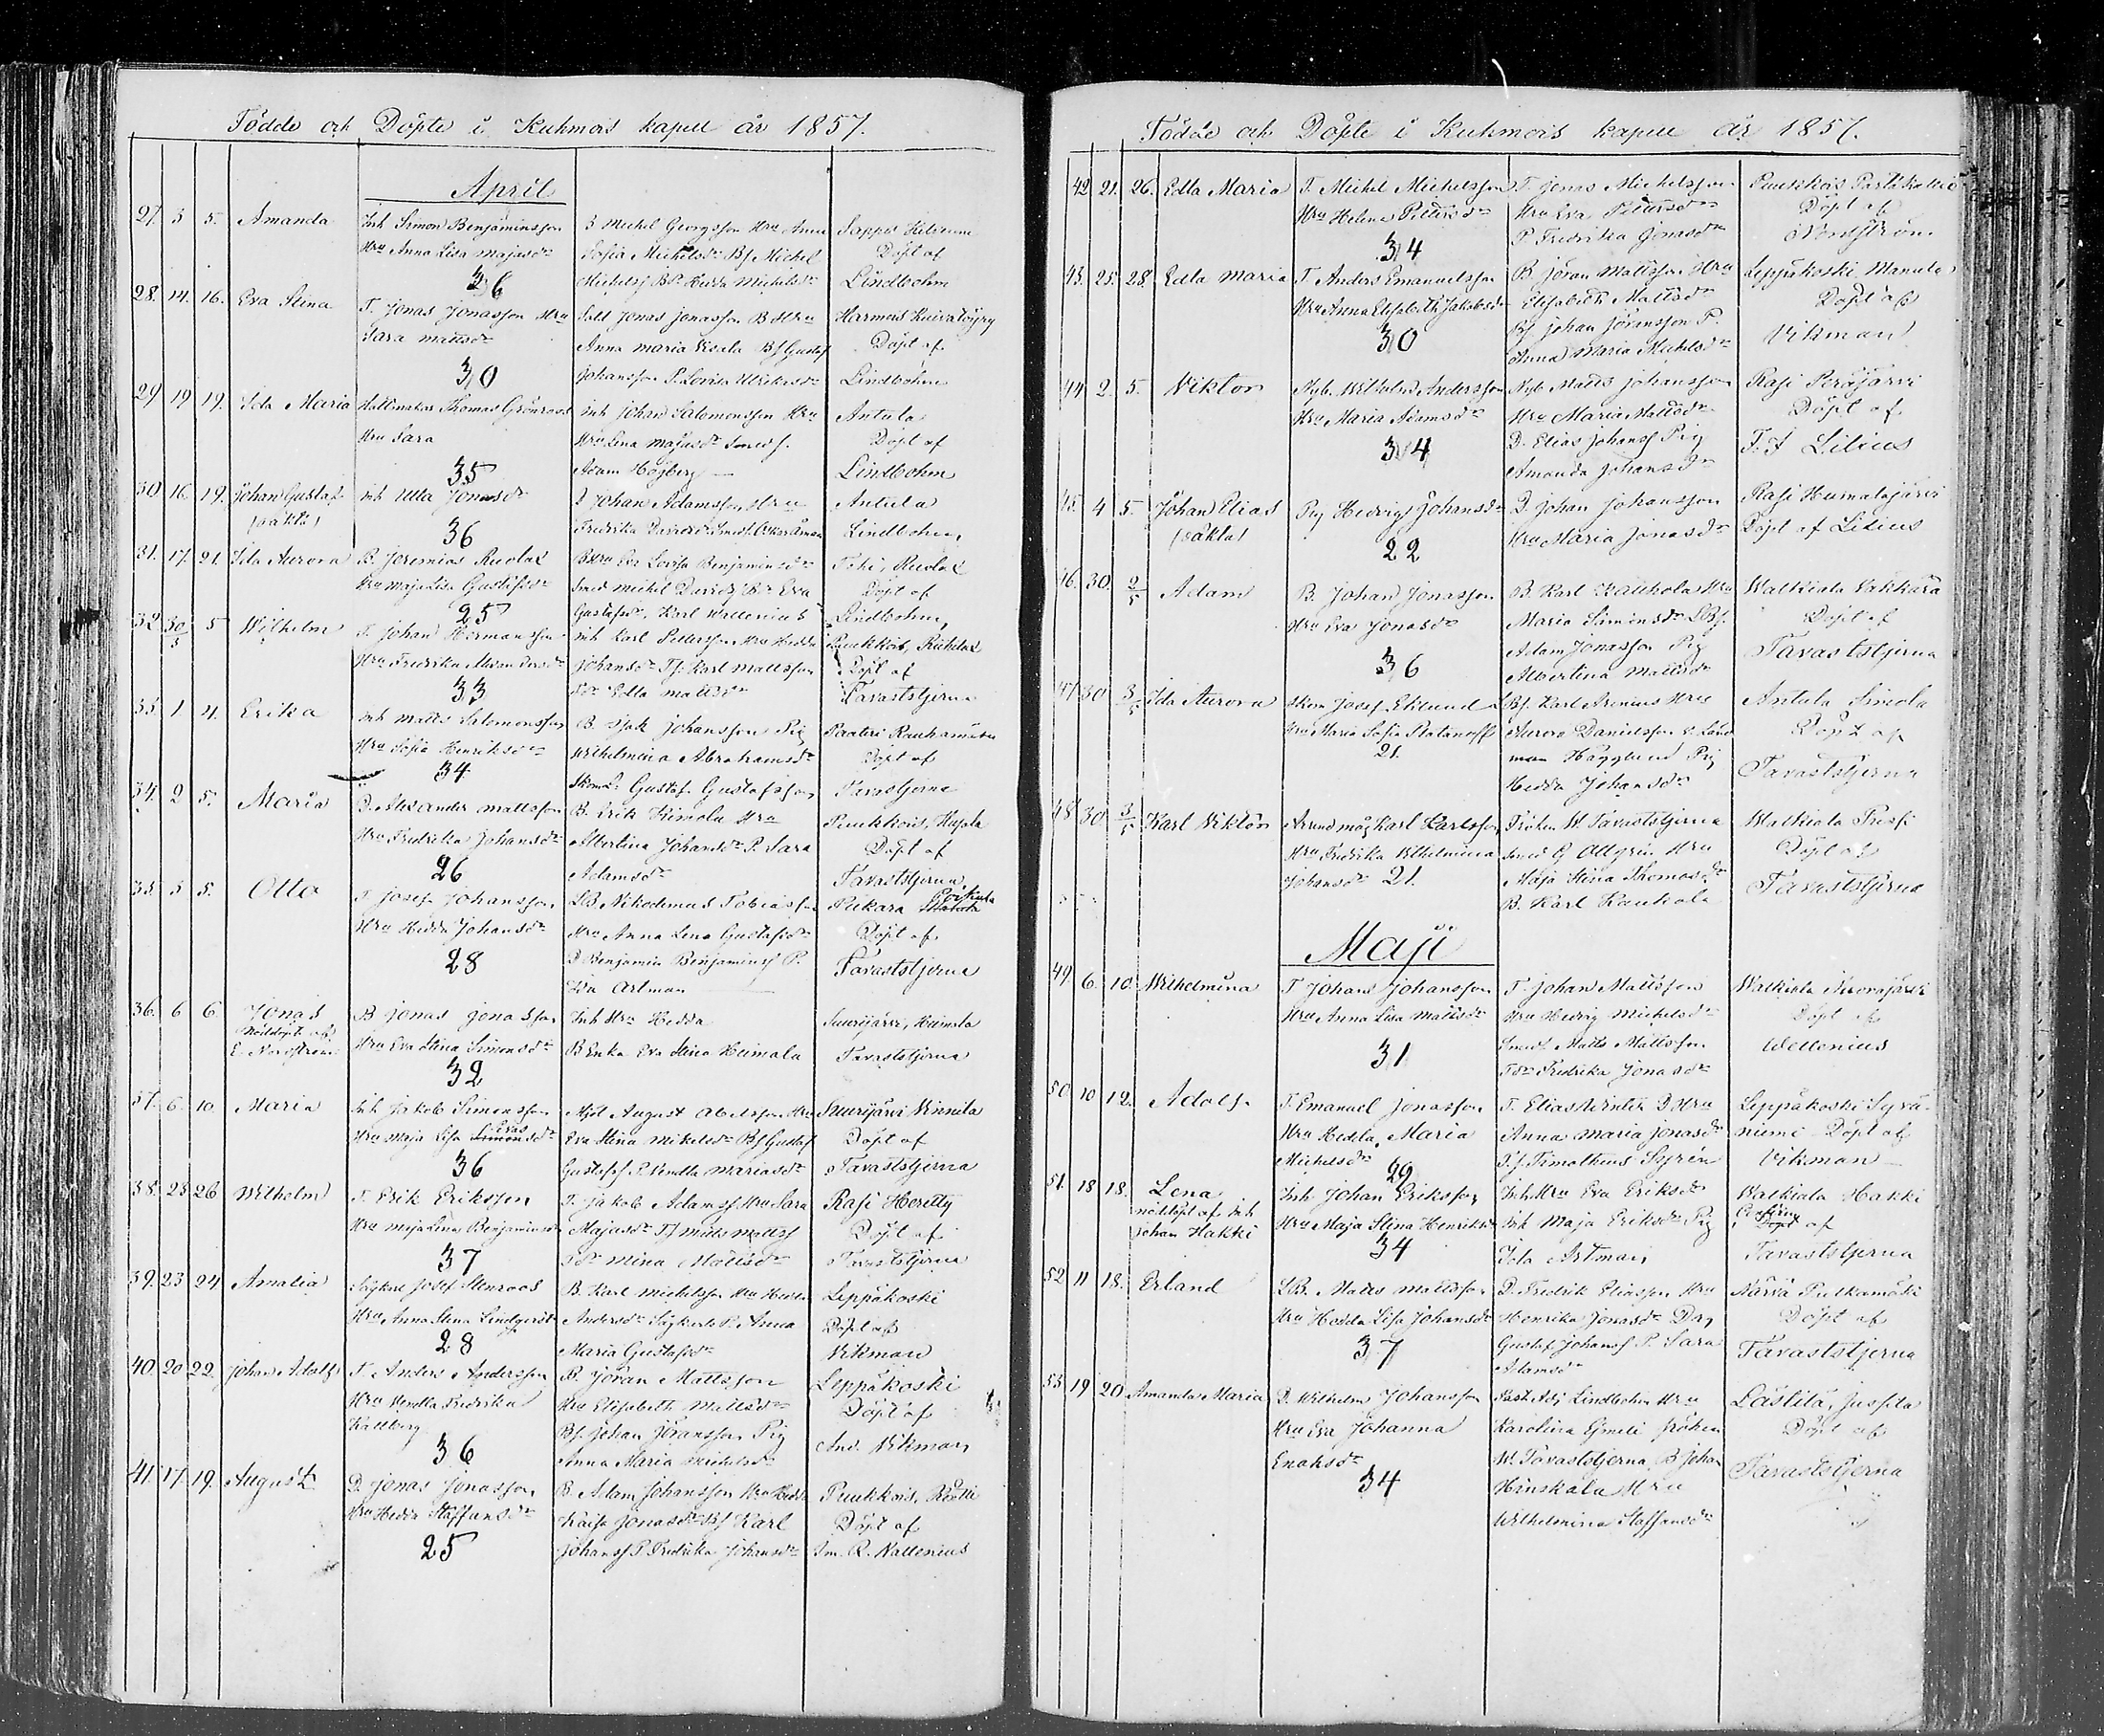 Födde och Döpte i Kuhmois kapell år 1857.
April
27. 3 5. Amanda
Inh Simon Benjaminsson
Hru Anna Lisa Majasdr
26
D Michel Georgsson Hru Anna
Sofia Michelsdr Bs Michel
Michelss Bdr Hedda Michelsdr
Sappee
Döpt af
Lindbohm
28. 14. 16. Eva Stina
T. Jonas Jonasson Hru
Sara Mattsdr
30
Sold Jonas Jonasson B Hru
Anna Maria Bs Gustaf
Johansson P. Lovisa Ulriksdr
Harmois
Döpt af
Lindbohm
29 19 19. Ida Maria
Hattmakar Thomas Grönroos
Hru Sara
35
Inh Johan Salomonsson Hru
Hru Lena Majasdr Smeds.
Adam Högberg
Antula
Döpt af
Lindbohm
30 16. 19. Johan Gustaf
(oäkta)
Inh Ulla Jonasdr
36
D Johan Adamsson Hru
Fredrika Davidsdr
Antula
Lindbohm
31. 17. 21. Ida Aurora
B. Jeremias Ruolax
Hru Maja Lisa Gustafsdr
25
BHru Eva Lovisa Benjaminsdr
Smed Michel Davidss Bdr Eva
Gustafsdr, Karl Wallenius
Ruolax
Döpt af
Lindbohm
32 30/5 5 Wilhelm
T. Johan Hermansson
Hru Fredrika Alexandersdr
33
Inh Karl Pettersson Hru Hedda
Johansdr Ts. Karl Mattsson
Tdr Edla Mattsdr
Puukkois,
Döpt af
Tavaststjerna
33 1 4. Erika
Inh Matts Salomonsson
Hru Sofia Henriksdr
34
B. Isak Johansson Pig
Wilhelmina Abrahamsdr
Gustaf Gustafsson
Döpt af
Tavastsjerna
34. 2 5. Maria
D. Alexander Mattsson
Hru Fredrika Johansdr
26
B. Erik Heimola Hru
Albertina Johansdr P. Sara
Adamsdr
Puukkois,
Döpt af
Tavaststjerna
35. 5 5. Otto
T Josef Johansson
Hru Hedda Johansdr
28
LB. Nikodemus Tobiasson
Hru Anna Lena Gustafsdr
D Benjamin Benjaminss P.
Ida Artman
Pihkara
Döpt af
Tavaststjerna
36. 6 6 Jonas
Nöddöpt af
E. Nordström
B Jonas Jonasson
Hru Eva Stina Simonsdr
32
Inh Hru Hedda
B Enka Eva Stina Heimala
Suurijärvi, Heimola
Tavaststjerna
37. 6. 10 Maria
Inh Jakob Simonsson
Evas
Hru Maja Lisa Simonsdr
36
Mjöl August Abelsson Hru
Eva Stina Mikelsdr Bs Gustaf
Gustafss P. Vendla Mariasdr
Suurijärvi Winnila
Döpt af
Tavaststjerna
38. 23 26 Wilhelm
T. Erik Eriksson
Hru Maja Lena Benjaminsdr
37
T. Jakob Adamss Hru Sara
Majasdr Ts Matts Mattss
Tdr Mina Mattsdr
Rasi Heretty
Döpt af
Tavaststjerna
39. 23 24 Amalia
Sågkarl Josef Stenroos
Hru Anna Stina Lindqvist
28
B. Karl Michelsson Hru Hedda
Andersdr Sågkarls P. Anna
Maria Gustafsdr
Leppäkoski
Döpt af
Vikman
40. 20 22. Johan Adolf
T. Anders Andersson
Hru Vendla Fredrika
Kallberg
36
B. Jöran Mattsson
Hru Elisabeth Mattsdr
Bs. Johan Jöransson Pig
Anna Maria Michelsdr
Leppäkoski
Döpt af
And. Vikman
41. 17. 19. August
D. Jonas Jonasson
Hru Hedda Staffansdr
25
B. Adam Johansson Hru Hedda
Kaisa Jonasdr Bs Karl
Johanss P. Fredrika Johansdr
Puukkois,
Döpt af
R. Vallenius
Födde och Döpte i Kuhmois kapell år 1857.
42 21. 26. Edla Maria
T. Michel Michelsson
Hru Helena Pettersdr
34
T. Jonas Michelsson
Hru Eva Pettersdr
P Fredrika Jonasdr
Puukkois
Döpt af
Nordström
43. 25. 28. Edla Maria
T. Anders Emanuelsson
Hru Anna Elisabeth Jakobsdr
30
B. Jöran Mattsson Hru
Elisabeth Mattsdr
Bs Johan Jöransson P.
Anna Maria Michelsdr
Leppäkoski Mannila
Döpt af
Vikman
44 2. 5. Viktor
Nyb. Wilhelm Andersson
Hru Maria Adamsdr
34
Nyb Matts Johansson
Hru Maria Mattsdr
D. Elias Johanss Pig
Amanda Johansdr
Rasi Peräjärvi
Döpt af
F. F Lilius
45. 4 5. Johan Elias
(oäkta)
Pig Hedvig Johansdr
22
D. Johan Johansson
Hru Maria Jonasdr
Rasi Humalajärvi
Döpt af Lilius
46. 30. 2/5 Adam
B. Johan Jonasson
Hru Eva Jonasdr
36
B. Karl Hru
Maria Simonsdr LBs.
Adam Jonasson Pig
Albertina Mattsdr
Walkiala Vakkära
Döpt af
Tavaststjerna
47 30 3/5 Ida Aurora
Skom Josef Eklund
Hru Maria Sofia Platanoff
21.
Bs. Karl Arenius Hru
Aurora Danielsson
Hägglund Pig
Hedda Johansdr
Antula Simola
Döpt af
Tavaststjerna
48 30 3/5 Karl Viktor
Karl Karlsson
Hru Fredrika Wilhelmina
Johansdr 21.
Fröken W. Tavaststjerna
Smed G Allgrén Hru
Maja Stina Thomasdr
B. Karl Kaukola
Walkiala
Döpt af
Tavaststjerna
Maji
49. 6. 10. Wilhelmina
T Johan Johansson
Hru Anna Lisa Mattsdr
31
T. Johan Mattsson
Hru Hedvig Michelsdr
Matts Mattsson
Tdr Fredrika Jonasdr
Walkiala
Döpt af
Wellenius
50. 10 12. Adolf
T. Emanuel Jonasson
Hru Hedda Maria
Michelsdr
29
T. Elias Winter D Hru
Anna Maria Jonasdr
Ts. Timotheus Syrén
Leppäkoski Syvä-
niemi Döpt af
Vikman
51. 18 18. Lena
nöddöpt af Inh
Johan Hakki
Inh Johan Eriksson
Hru Maja Stina Henriksdr
34
Inh Hru Eva Eriksdr
Inh Maja Eriksdr Pig
Ida Artman
Walkiala Hakki
Döpt af
Tavaststjerna
52 11 18. Erland
LB. Matts Mattsson
Hru Hedda Lisa Johansdr
37
D. Fredrik Eliasson Hru
Henrika Jonasdr Drg
Gustaf Johanss P. Sara
Adamsdr
Närvä Putkamäki
Döpt af
Tavaststjerna
53 19 20 Amanda Maria
D. Wilhelm Johansson
Hru Eva Johanna
Enoksdr
34
Past. Adj Lindbohm Hru
Karolina Emili Fröken
W. Tavaststjerna, B Johan
Hinskala Hru
Wilhelmina Staffansdr
Lästilä, Jussila
Döpt af
Tavaststjerna